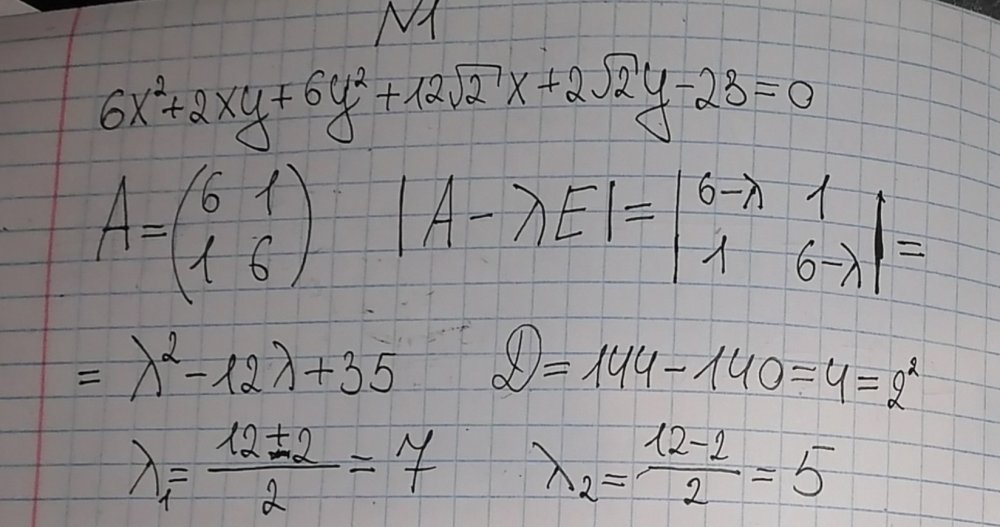 N1
6x²+2xy+6y²+12√2x+2√2y-23=0
A=(6 1
1 6) |A-λE|=|6-λ 1
1 6-λ|=
=λ²-12λ+35 D=144-140=4=2²
λ₁=(12±2)/2=7 λ₂=(12-2)/2=5